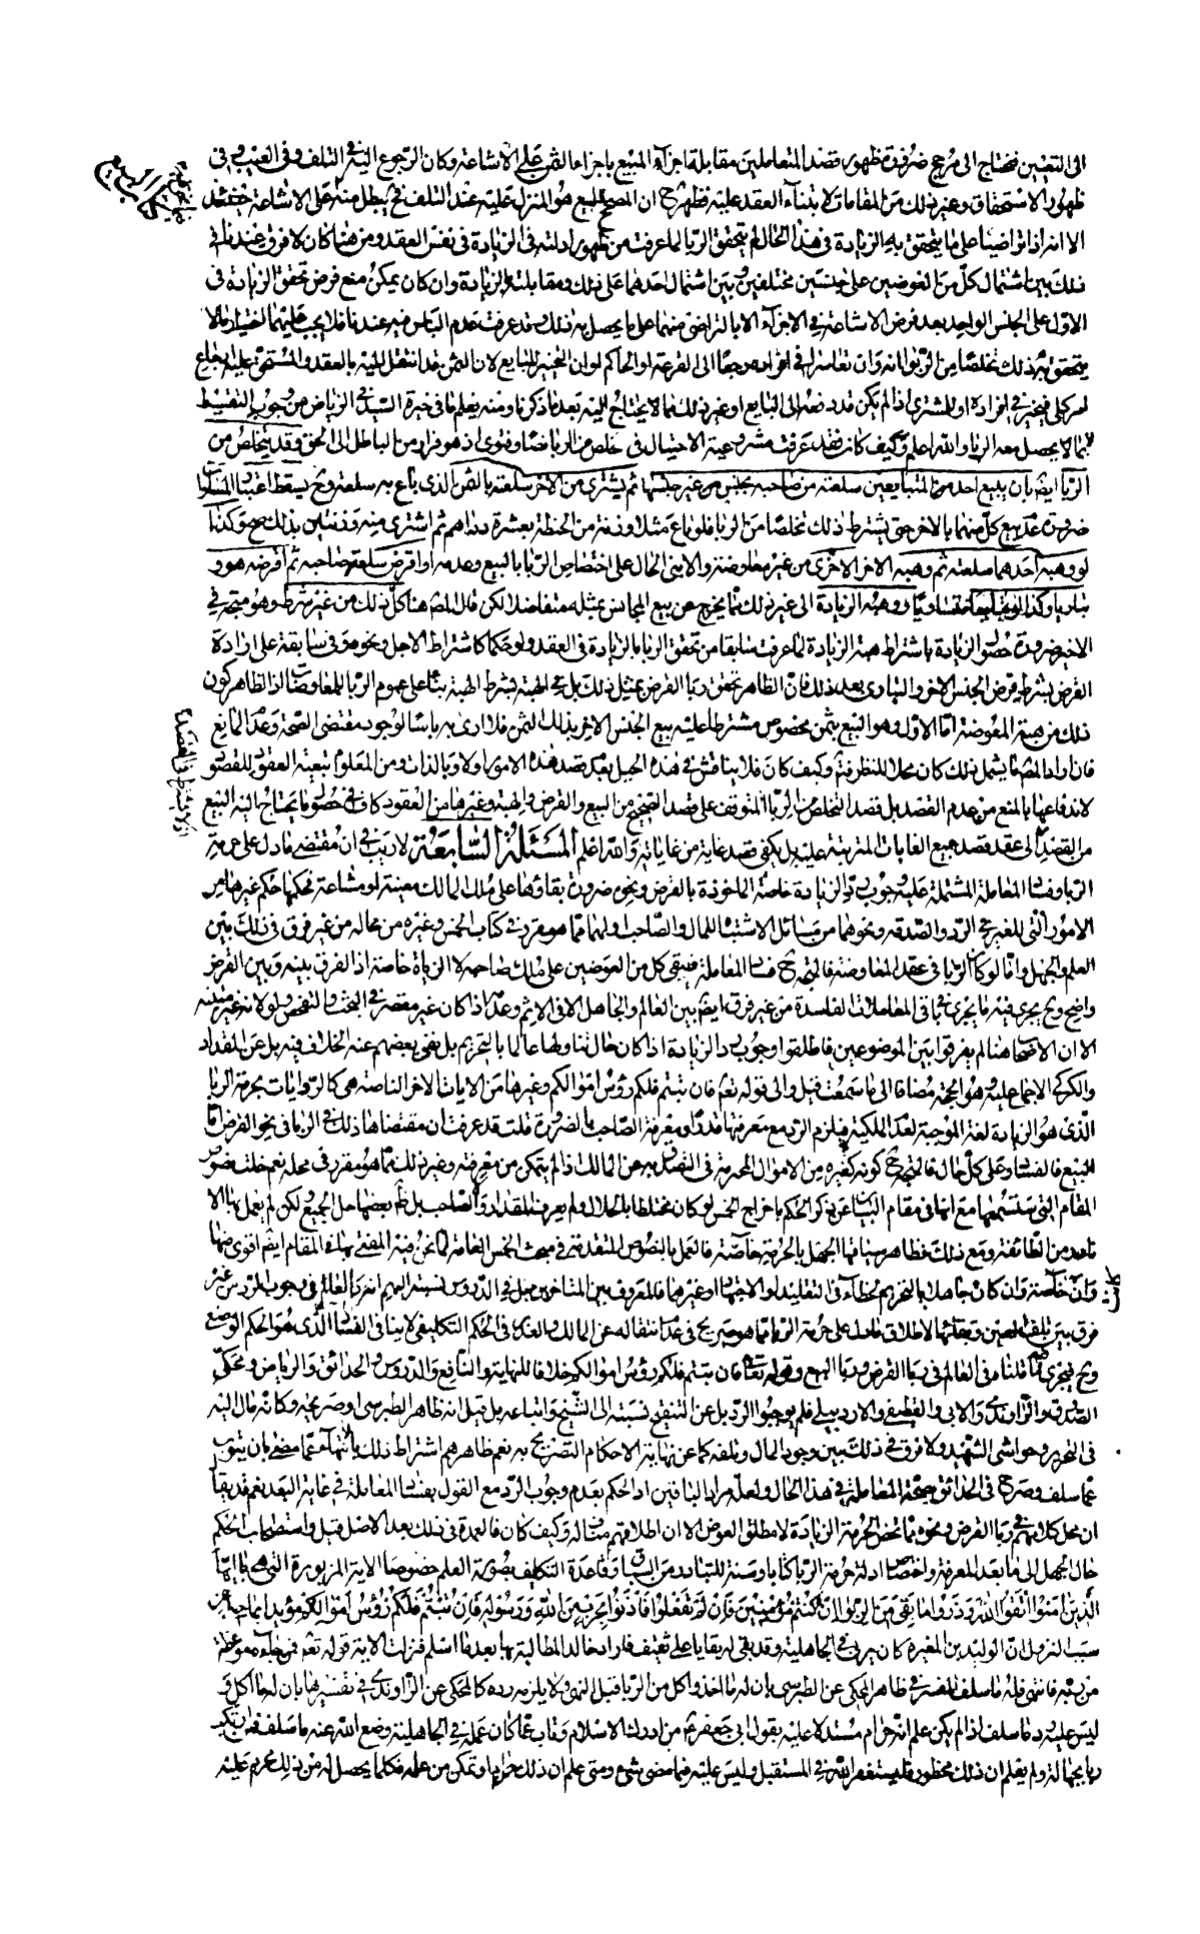 الى التعيين فيحتاج الى مرجح ضرورة ظهور قصد المتعاملين مقابلة اجزاء المبيع باجزاء الثمن على الاشاعة وكان الرجوع اليه في التلف وفى العيب وفى
ظهور الاستحقاق وغير ذلك من المقامات لابتناء العقد عليه فظهر ح ان المصحح للبيع هو المنزل عليه عند التلف فح يبطل منه على الاشاعة
الا انه اذا تراضيا على ما يتحقق به الزيادة في هذا الحال لم يتحقق الربا لما عرفت من ظهور ادلته في الزيادة في نفس العقد ومن هنا كان لا فرق عندنا في
ذلك بين اشتمال كل من العوضين على جنسين مختلفين وبين اشتمال احدهما على ذلك ومقابلته بالزيادة وان كان يمكن منع فرض تحقق الزيادة في
الاول على الجنس الواحد بعد فرض الاشاعة في الاجزاء الا بالتراضى منهما على ما يحصل به ذلك وقد عرفت عدم الباس فيه عندنا فلا يجب عليهما اختيار ما لا
يتحقق به ذلك تخلصا من الربوا
امر كلى فيخير في افراده او المشترى اذا لم يكن قد دفعه الى البايع او غير ذلك مما لا يحتاج اليه بعد ما ذكرنا ومنه يعلم ما في خيرة السيد في الرياض من وجوب التقسيط
بما لا يحصل معه الربا والله اعلم وكيف كان فقد عرفت مشروعية الاحتيال في التخلص من الربا نصا وفتوى اذ هو فرار من الباطل الى الحق وقد يتخلص من
الربا ايضا بان يبيع احد المتبايعين سلعته من صاحبه بجنس من غير جنسها ثم يشترى من الاخر سلعته بالثمن الذى باع به سلعته وح يسقط اعتبار المساواة
ضرورة عدم بيع كل منهما بالاخر حتى يشترط ذلك تخلصا من الربا فلو باع مثلا وزنة من الحنطة بعشرة دراهم ثم اشترى منه وزنتين بذلك صح وكذا
لو وهبه احدهما سلعته ثم وهبه الاخر الاخرى من غير معاوضة والا بنى الحال على اختصاص الربا بالبيع وعدمه او اقرض سلعته صاحبه ثم اقرضه هو و
تباريا وكذا لو تبايعا متساويا ووهبه الزيادة الى غير ذلك مما يخرج عن بيع المجانس بمثله متفاضلا لكن قال المصنف هنا كل ذلك من غير شرط وهو متجه في
الاخير ضرورة حصول الزيادة باشتراط هبة الزيادة لما عرفت سابقا من تحقق الربا بالزيادة في العقد ولو حكما كاشتراط الاجل ونحوه و في سابقة على ارادة
القرض بشرط قرض الجنس الاخر والتبارى بعد ذلك فان الظاهر تحقق ربا القرض بمثل ذلك بل في الهبة بشرط الهبة بناء على عموم الربا للمعاوضات اذ الظاهر كون
ذلك من هبة المعوضة اما الاول وهو البيع بثمن مخصوص مشترطا عليه بيع الجنس الاخر بذلك الثمن فلا ارى به باسا لوجود مقتضى الصحة وعدم المانع
فان اراد المصنف ما يشمل ذلك كان محلا للنظر فيه وكيف كان فلا يناقش في هذه الحيل بعدم قصد هذه الامور اولا وبالذات ومن المعلوم تبعية العقود للقصود
لاندفاعها بالمنع من عدم القصد بل قصد التخلص من الربا المتوقف على قصد الصحيح من البيع والقرض والهبة وغيرها من العقود كاف في حصول ما يحتاج اليه البيع
من القصد الى عقد قصد جميع الغايات المترتبة عليه بل يكفى قصد غاية من غاياته والله اعلم المسئلة السابعة لا ريب في ان مقتضى ما دل على حرمة
الربا وفساد المعاملة المشتملة عليه وجوب رد الزيادة خاصة الماخوذة بالقرض ونحوه ضرورة بقاؤها على ملك المالك معينة او مشاعة فحكمها حكم غيرها من
الامور التى للغير في الرد والصدقة ونحوهما من مسائل الاشتباه للمال والصاحب او لهما مما هو مقرر في كتاب الخمس وغيره من محاله من غير فرق في ذلك بين
العلم والجهل واما لو كان الربا في عقد المعاوضة فالمتجه ح فساد المعاملة فيبقى كل من العوضين على ملك صاحبه لا الزيادة خاصة اذ الفرق بينه وبين القرض
واضح وح يجرى فيه ما يجرى في باقى المعاملات الفاسدة من غير فرق ايضا بين العالم والجاهل الا في الاثم وعدمه اذا كان غير مقصر في البحث والتفحص
الا ان الاصحاب هنا لم يفرقوا بين الموضوعين فاطلقوا وجوب رد الزيادة اذا كان حال تناولها عالما بالتحريم بل نفى بعضهم عنه الخلاف فيه بل عن المقداد
والكركى الاجماع عليه وهو الحجة مضافا الى ما سمعت قبل والى قوله تعالى فان تبتم فلكم رؤس اموالكم وغيرها من الايات الاخر الناصة هي كالروايات بحرمة الربا
الذى هو الزيادة لغة الموجبة لعدم الملكية فيلزم الرد مع معرفتها قدرا ومعرفة الصاحب بالضرورة قلت قد عرفت ان مقتضاها ذلك في الربا في نحو القرض اما
البيع فالفساد وعلى كل حال فالمتجه ح كونه كغيره من الاموال المحرمة في التصدق به عن المالك اذا لم يتمكن من معرفته وغير ذلك مما هو مقرر في محله نعم خلت نصوص
المقام التى ستسمعها مع انها في مقام البيان عن ذكر الحكم باخراج الخمس لو كان مختلطا بالحلال ولم يعرف المقدار ولا الصاحب بل ظاهر بعضها حل الجميع ولكن لم يعمل بها الا
نادر من الطائفة ومع ذلك فظاهر سياقها الجهل بالحرمة خاصة فالعمل بالنصوص المتقدمة في مبحث الخمس العامة لما نحن فيه المفتى بها في المقام ايضا اقوى منها
وان كان جاهلا بالتحريم لخطاء في التقليد او الاجتهاد او غيرهما فالمعروف بين المتاخرين بل في الدروس نسبته اليهم انه كالعالم في وجوب الرد من غير
فرق بين تلف العين وبقائها لاطلاق ما دل على حرمة الربا مما هو صريح في عدم انتقاله عن المالك والعذر في الحكم التكليفى لا ينافى الفساد الذى هو الحكم الوضعى
وح فيجرى فيه ما قلناه في العالم في ربا القرض وربا البيع وقوله تعالى فان تبتم فلكم رؤس اموالكم خلافا للنهاية والنافع والدروس والحدائق والرياض ومحكى
الصدوق والراوندى والابى والقطيفى والاردبيلى فلم يوجبوا الرد بل عن التنقيح نسبته الى الشيخ واتباعه بل قيل انه ظاهر الطبرسى او صريحه وكانه مال اليه
في التحرير وحواشى الشهيد ولا فرق في ذلك بين وجود المال وتلفه كما عن نهاية الاحكام التصريح به نعم ظاهرهم اشتراط ذلك بانتهائه عما مضى بان يتوب
عما سلف وصرح في الحدائق بصحة المعاملة في هذا الحال ولعله مراد الباقين اذ الحكم بعدم وجوب الرد مع القول بفساد المعاملة في غاية البعد نعم قد يقال
ان محل كلامهم في ربا القرض ونحوه مما تختص الحرمة الزيادة لا مطلق العوض الا ان اطلاقهم مناف له وكيف كان فالعمدة في ذلك بعد الاصل قيل واستصحاب الحكم
حال الجهل الى ما بعد المعرفة واختصاص ادلة حرمة الربا كتابا وسنة للتبادر من السياق وقاعدة التكليف بصورة العلم خصوصا الاية المزبورة التى هي يا ايها
الذين امنوا اتقوا الله وذروا ما بقى من الربوا ان كنتم مؤمنين فان لم تفعلوا فاذنوا بحرب من الله ورسوله فان تبتم فلكم رؤس اموالكم مؤيدا بما جاء من
سبب النزول ان الوليد بن المغيرة كان يربى في الجاهلية وقد بقى له بقايا على ثقيف فاراد خالد المطالبة بها بعد ما اسلم فنزلت الاية قوله تعالى فمن جاءه موعظة
من ربه فانتهى فله ما سلف المفسر في ظاهر المحكى عن الطبرسى بان له ما اخذ واكل من الربا قبل النهى ولا يلزمه رده كالمحكى عن الراوندى في تفسيرها بان له ما اكل و
ليس عليه رد ما سلف اذا لم يكن علم انه حرام مستدلا عليه بقول ابى جعفر ع من ادرك الاسلام وتاب عما كان عمله في الجاهلية وضع الله عنه ما سلف فمن ارتكب
ربا بجهالة ولم يعلم ان ذلك محظور فليستغفر الله في المستقبل وليس عليه فيما مضى شئ ومتى علم ان ذلك حرام وتمكن من علمه فكلما يحصل له من ذلك محرم عليه